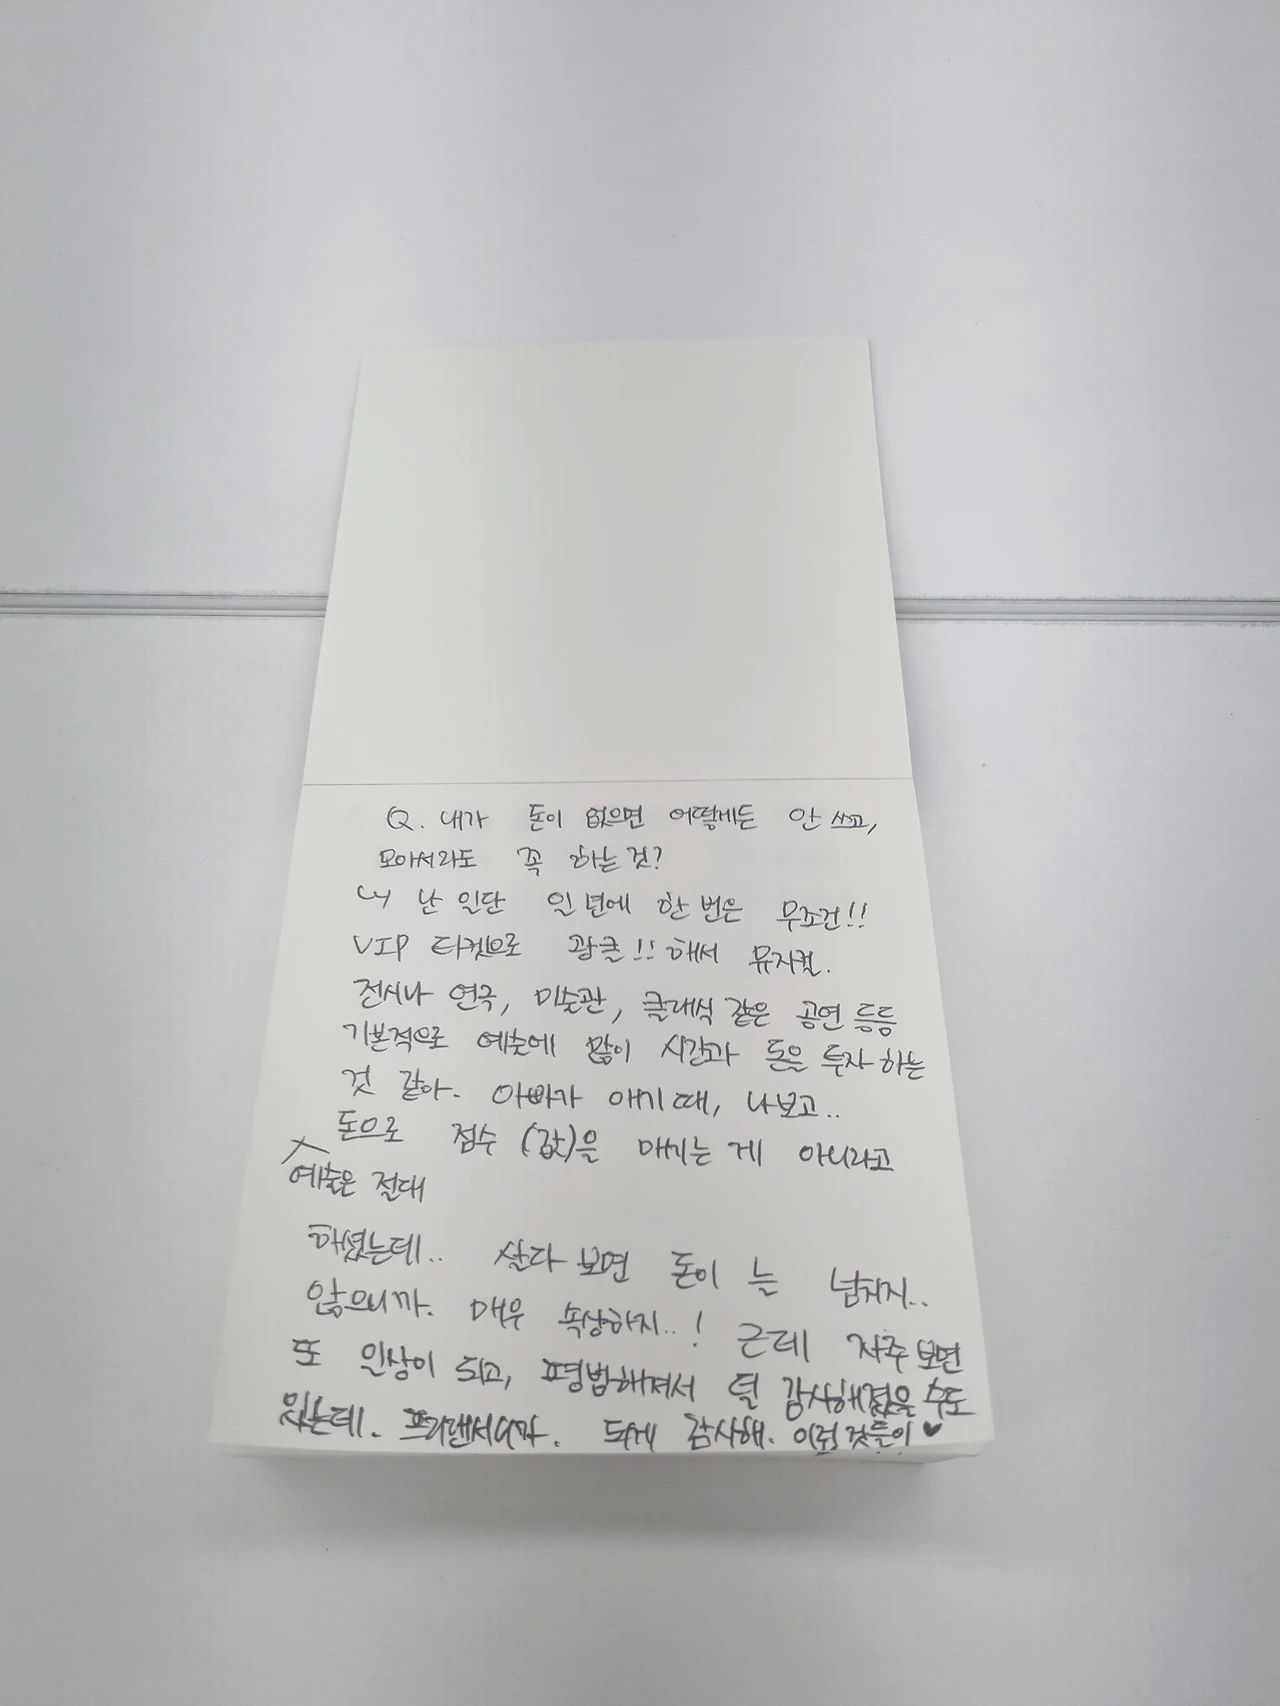 Q. 내가 돈이 없으면 어떻게든 안 쓰고,
모아서라도 꼭 하는 것?
난 일단 일 년에 한 번은 무조건!!
VIP 티켓으로 광클!! 해서 뮤지컬.
전시나 연극, 미술관, 클래식 같은 공연 등등
기본적으로 예술에 많이 시간과 돈을 투자하는
것 같아. 아빠가 애기 때, 나보고..
돈으로 점수 (값)을 매기는 게 아니라고
예술은 절대
하셨는데.. 살다 보면 돈이 늘 넘치지..
않으니까. 매우 속상하지..! 근데 자주 보면
또 일상이 되고, 평범해져서 덜 감사해졌을 수도
있는데. 프리랜서니까. 되게 감사해. 이런 것들이 ♥